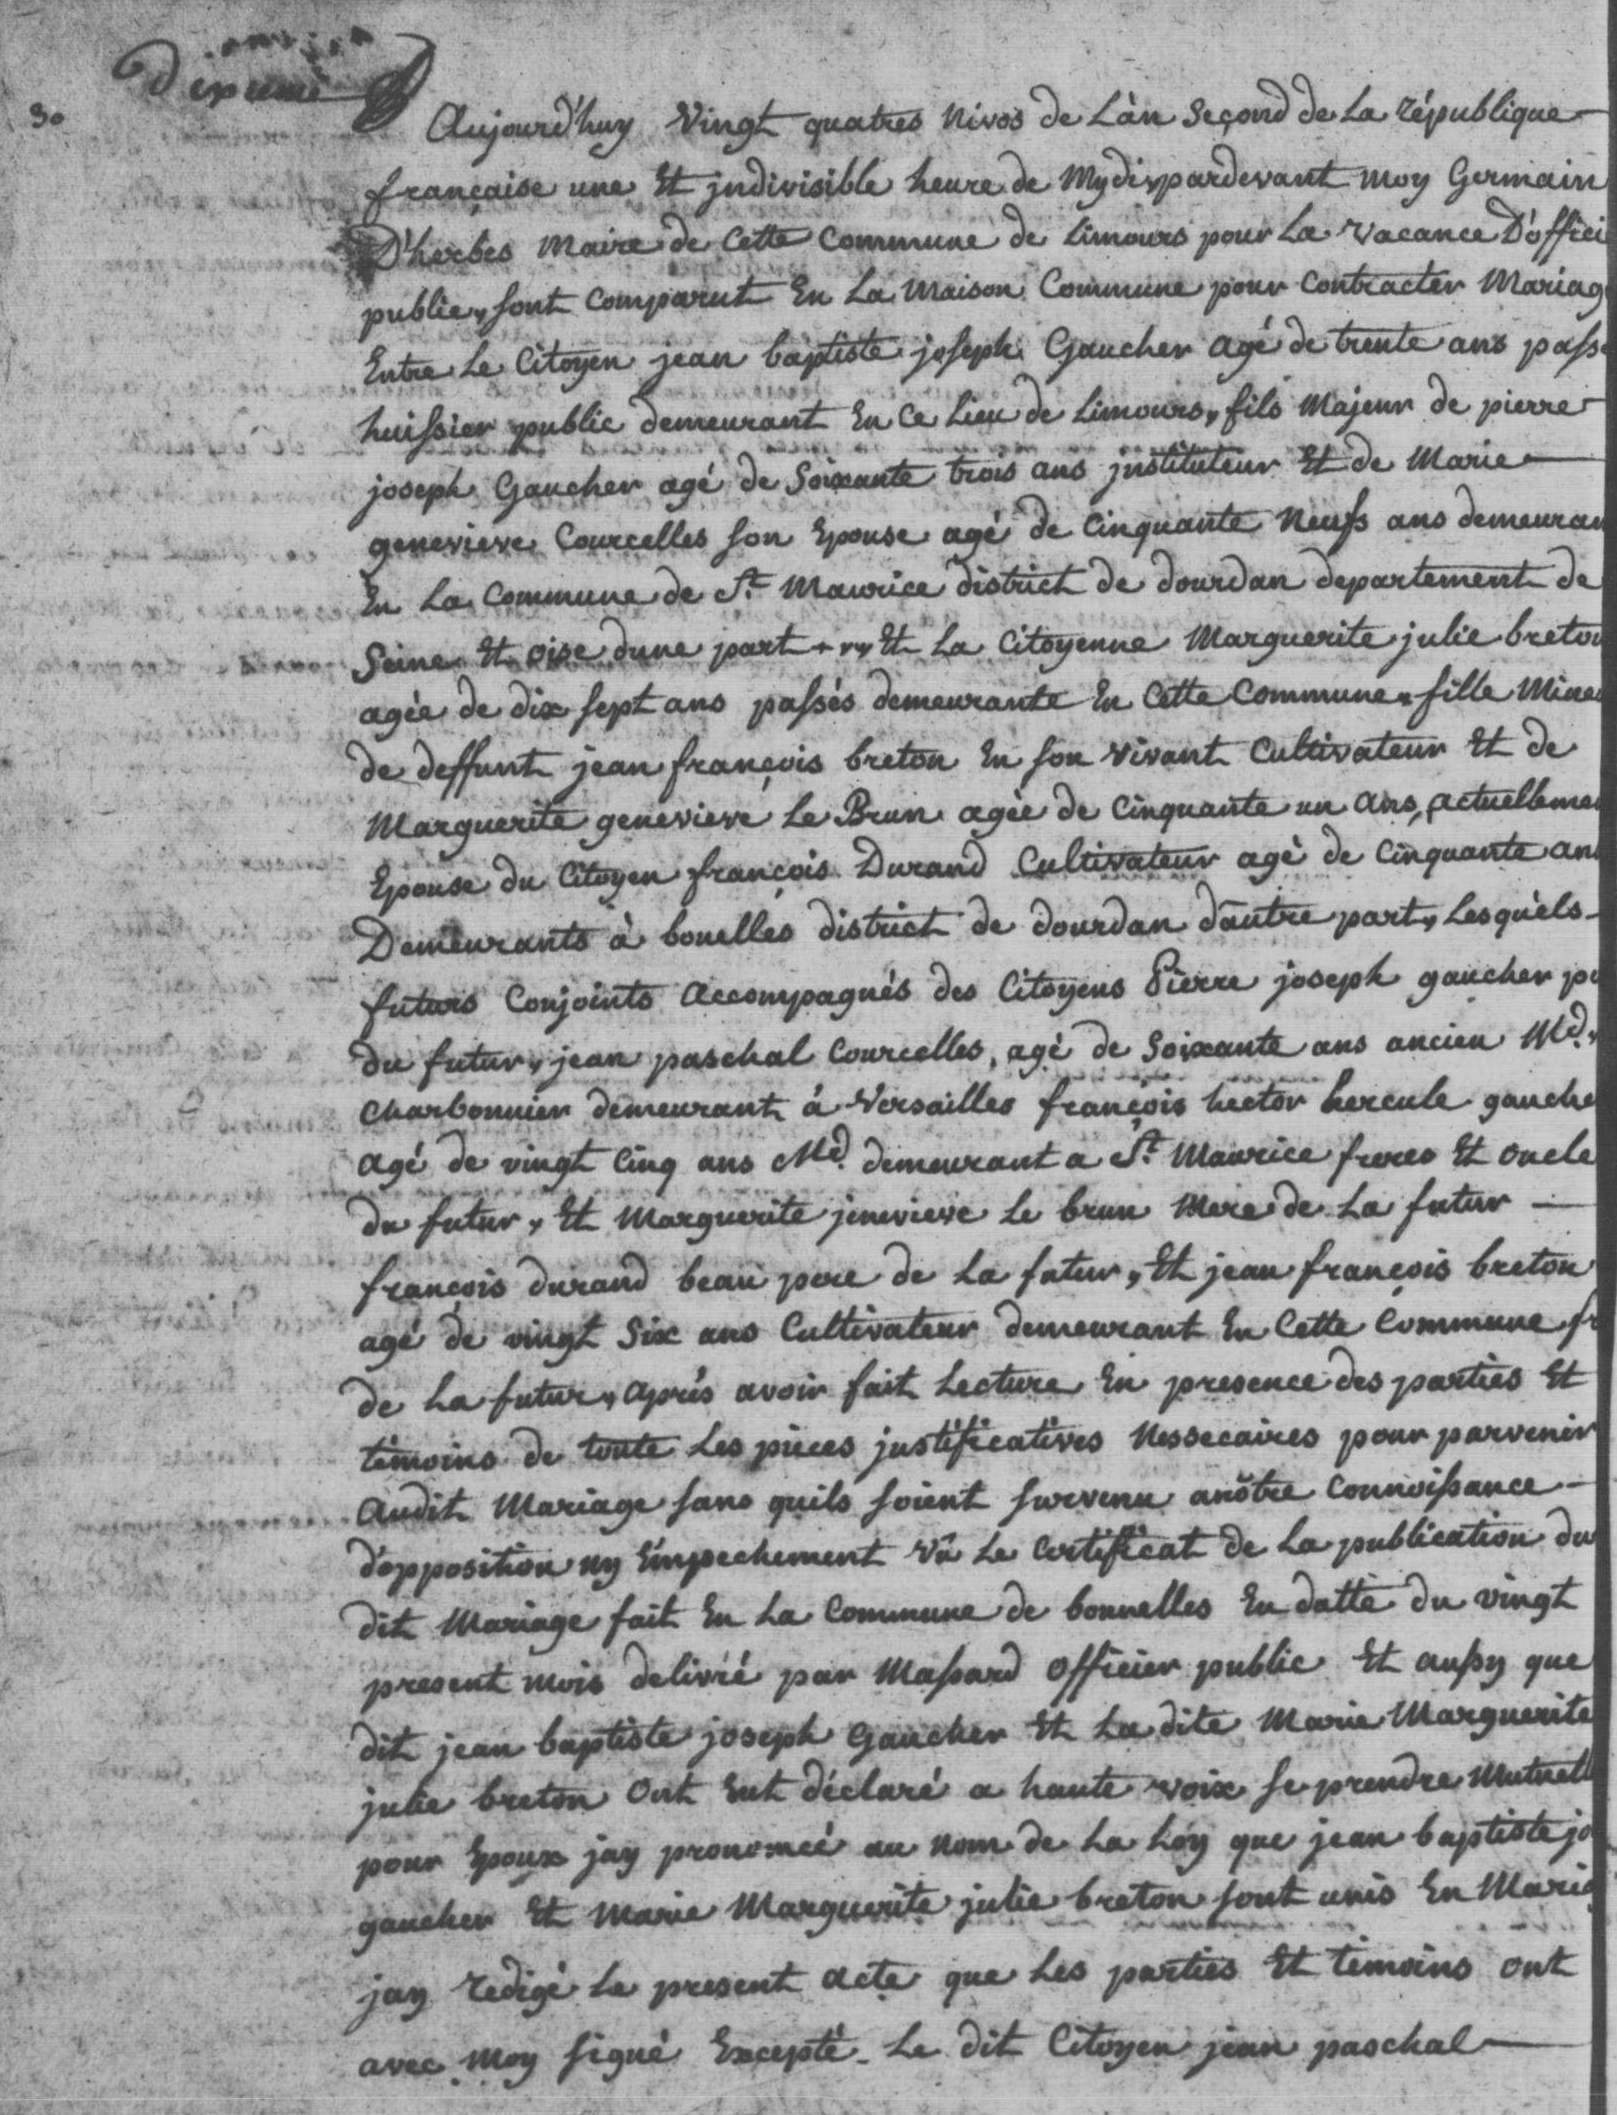 30
Aujourd'huy Vingt quatres Nivos de L'àn Second de La République
française une Et jndivisible heure de Mydi, pardevant moy Germain
D'herbes Maire de Cette Commune de Limours pour La Vacance D'offici
public, sont Comparut En La Maison Commune pour Contracter Mariag
Entre Le Citoyen jean baptiste joseph Gaucher agé de trente ans passé
huissier public demeurant En Ce Lieu de Limours, fils Majeur de pierre
joseph Gaucher agé de Soixante trois ans jnstituteur Et de Marie
genevieve Courcelles son Epouse agé de Cinquante Neufs ans demeuran
En La Commune de St. Maurice district de dourdan departement de
Seine Et oise dune part Et La Citoyenne Marguerite julie breton
agée de dix sept ans passés demeurante En Cette Commune, fille Mine
de deffunt jean françois breton En son vivant Cultivateur Et de
Marguerite genevieve Le Brun agée de Cinquante un ans, actuelleme
Epouse du Citoyen françois Durand Cultivateur agé de Cinquante ans
Demeurants à bonelles district de dourdan dautre part, Lesquèls
futurs Conjoints Accompagnés des Citoyens Pierre joseph gaucher pe
du futur, jean paschal Courcelles, agé de Soixante ans ancien Md.
Charbonnier demeurant à Versailles françois hector hercule gauche
agé de vingt Cinq ans Md. demeurant a St. Maurice freres Et oncle
du futur, Et Marguerite jenevieve Le brun Mere de La futur
françois durand beau pere de La futur, Et jean françois breton
agé de vingt Six ans Cultivateur demeurant En Cette Commune fr
de La futur, Aprés avoir fait Lecture En presence des parties Et
témoins de toute Les pièces justificatives Nessecaires pour parvenir
Audit Mariage sans quils soient survenu anôtre Connoissance
d'opposition ny Empechement Vû Le Certificat de La publication du
dit Mariage fait En La Commune de bonnelles En datte du vingt
present mois delivré par Massard officier public Et aussy que
dit jean baptiste joseph Gaucher Et La dite Marie Marguerite
julie breton Ont Eut déclaré a haute voix se prendre Mutuell
pour Epoux jay prononcé au nom de La Loy que jean baptiste jo
gaucher Et Marie Marguerite julie breton sont unis En Maria
jay redigé Le present acte que Les parties Et témoins ont
avec moy signé Excepté Le dit Citoyen jean paschal